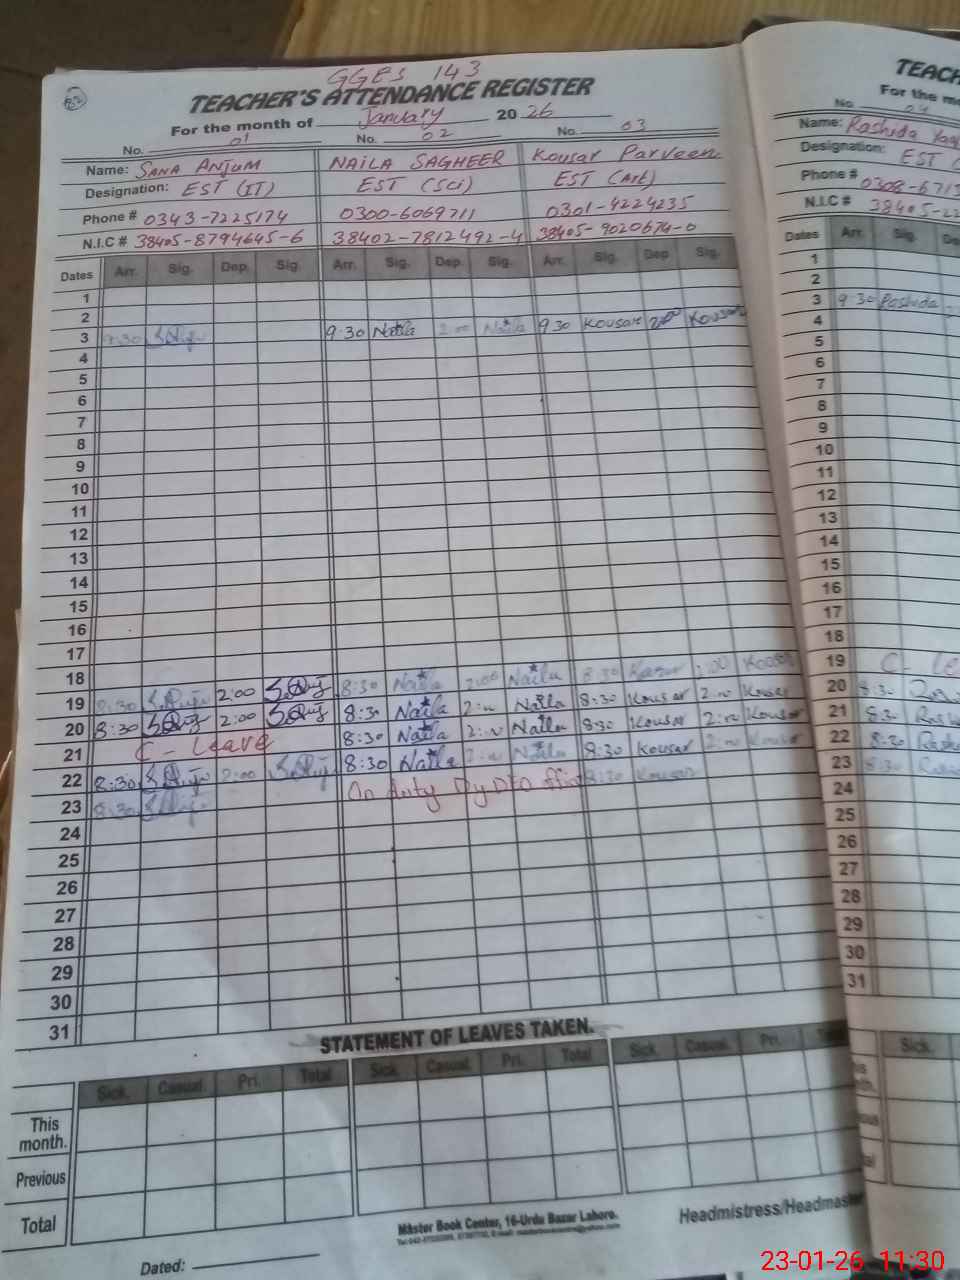 GGES 143
TEACHER'S ATTENDANCE REGISTER
For the month of January 20 26
No. 01 No. 02 No. 03
Name: SANA ANJUM NAILA SAGHEER Kousar Parveen
Designation: EST (IT) EST (Sci) EST (Art)
Phone # 0343-7225174 0300-6069711 0301-4224235
N.I.C # 38405-8794645-6 38402-7812492-4 38405-9020674-0
Dates Arr. Sig. Dep. Sig. Arr. Sig. Dep. Sig. Arr. Sig. Dep Sig.
1
2
3 9:30 9:30 Naila 2:00 Naila 9 30 Kousar Kousar
4
5
6
7
8
9
10
11
12
13
14
15
16
17
18
19 8:30 2:00 8:30 Naila 2:00 Naila 8:30 Kousar 2:00 Kousar
20 8:30 2:00 8:30 Naila 2:00 Naila 8:30 Kousar 2:00 Kousar
21 C - Leave 8:30 Naila 2:00 Naila 8:30 Kousar 2:00 Kousar
22 8:30 2:00 8:30 Naila 2:00 Naila 8:30 Kousar 2:00 Kousar
23 8:30 On duty Dy DEO office 8:30 Kousar
24
25
26
27
28
29
30
31
STATEMENT OF LEAVES TAKEN.
Sick. Casual. Pri. Total Sick. Casual. Pri. Total Sick. Casual. Pri.
This month.
Previous
Total
Master Book Center, 16-Urdu Bazar Lahore.
Headmistress/Headmaster
Dated:
TEACH
For the mo
No. 04
Name: Rashida
Designation: EST
Phone # 0308-6713
N.I.C # 38405-22
Dates Arr. Sig. De
1
2
3 9:30 Rashida
4
5
6
7
8
9
10
11
12
13
14
15
16
17
18
19 C- Le
20 8:30
21 8:30
22 8:30
23 8:30
24
25
26
27
28
29
30
31
Sick.
23-01-26 11:30